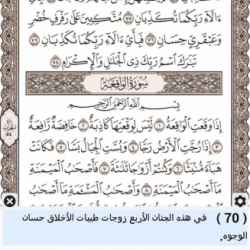 ءَالَآءِ رَبِّكُمَا تُكَذِّبَانِ ٧٥ مُتَّكِـِٔينَ عَلَىٰ رَفْرَفٍ خُضْرٍ
وَعَبْقَرِيٍّ حِسَانٍ ٧٦ فَبِأَيِّ ءَالَآءِ رَبِّكُمَا تُكَذِّبَانِ ٧٧
تَبَٰرَكَ ٱسْمُ رَبِّكَ ذِي ٱلْجَلَٰلِ وَٱلْإِكْرَامِ ٧٨
سُورَةُ الوَاقِعَةِ
بِسْمِ ٱللَّهِ ٱلرَّحْمَٰنِ ٱلرَّحِيمِ
إِذَا وَقَعَتِ ٱلْوَاقِعَةُ ١ لَيْسَ لِوَقْعَتِهَا كَاذِبَةٌ ٢ خَافِضَةٌ رَّافِعَةٌ
٣ إِذَا رُجَّتِ ٱلْأَرْضُ رَجًّا ٤ وَبُسَّتِ ٱلْجِبَالُ بَسًّا ٥ فَكَانَتْ
هَبَآءً مُّنۢبَثًّا ٦ وَكُنتُمْ أَزْوَٰجًا ثَلَٰثَةً ٧ فَأَصْحَٰبُ ٱلْمَيْمَنَةِ
مَآ أَصْحَٰبُ ٱلْمَيْمَنَةِ ٨ وَأَصْحَٰبُ ٱلْمَشْـَٔمَةِ مَآ أَصْحَٰبُ
( 70 ) في هذه الجنان الأربع زوجات طيبات الأخلاق حسان
الوجوه.